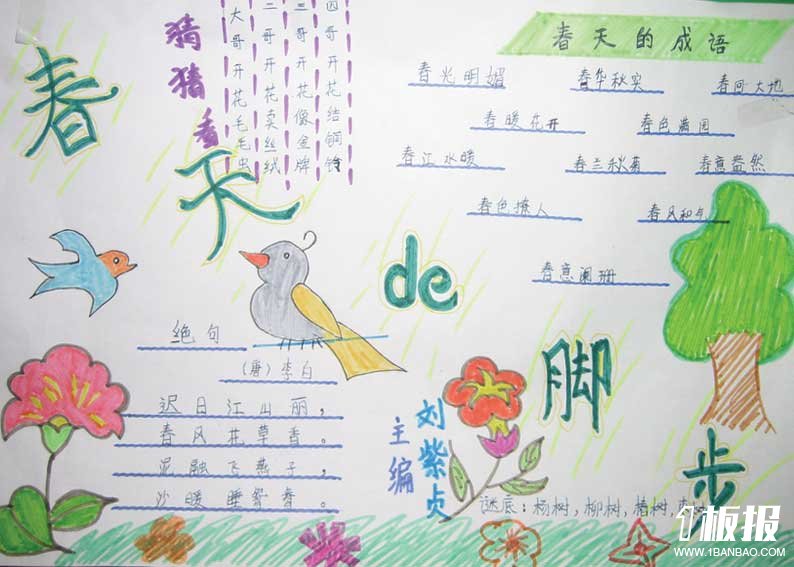 春天de脚步
猜猜看
大哥开花毛毛虫
二哥开花卖丝绒
三哥开花像金牌
四哥开花结铜铃
春天的成语
春光明媚 春华秋实 春回大地
春暖花开 春色满园
春江水暖 春兰秋菊 春意盎然
春色撩人 春风和气
春意阑珊
绝句
(唐)李白
迟日江山丽,
春风花草香。
泥融飞燕子,
沙暖睡鸳鸯。
主编
刘紫贞
谜底:杨树,柳树,椿树,
1板报
WWW.1BANBAO.COM